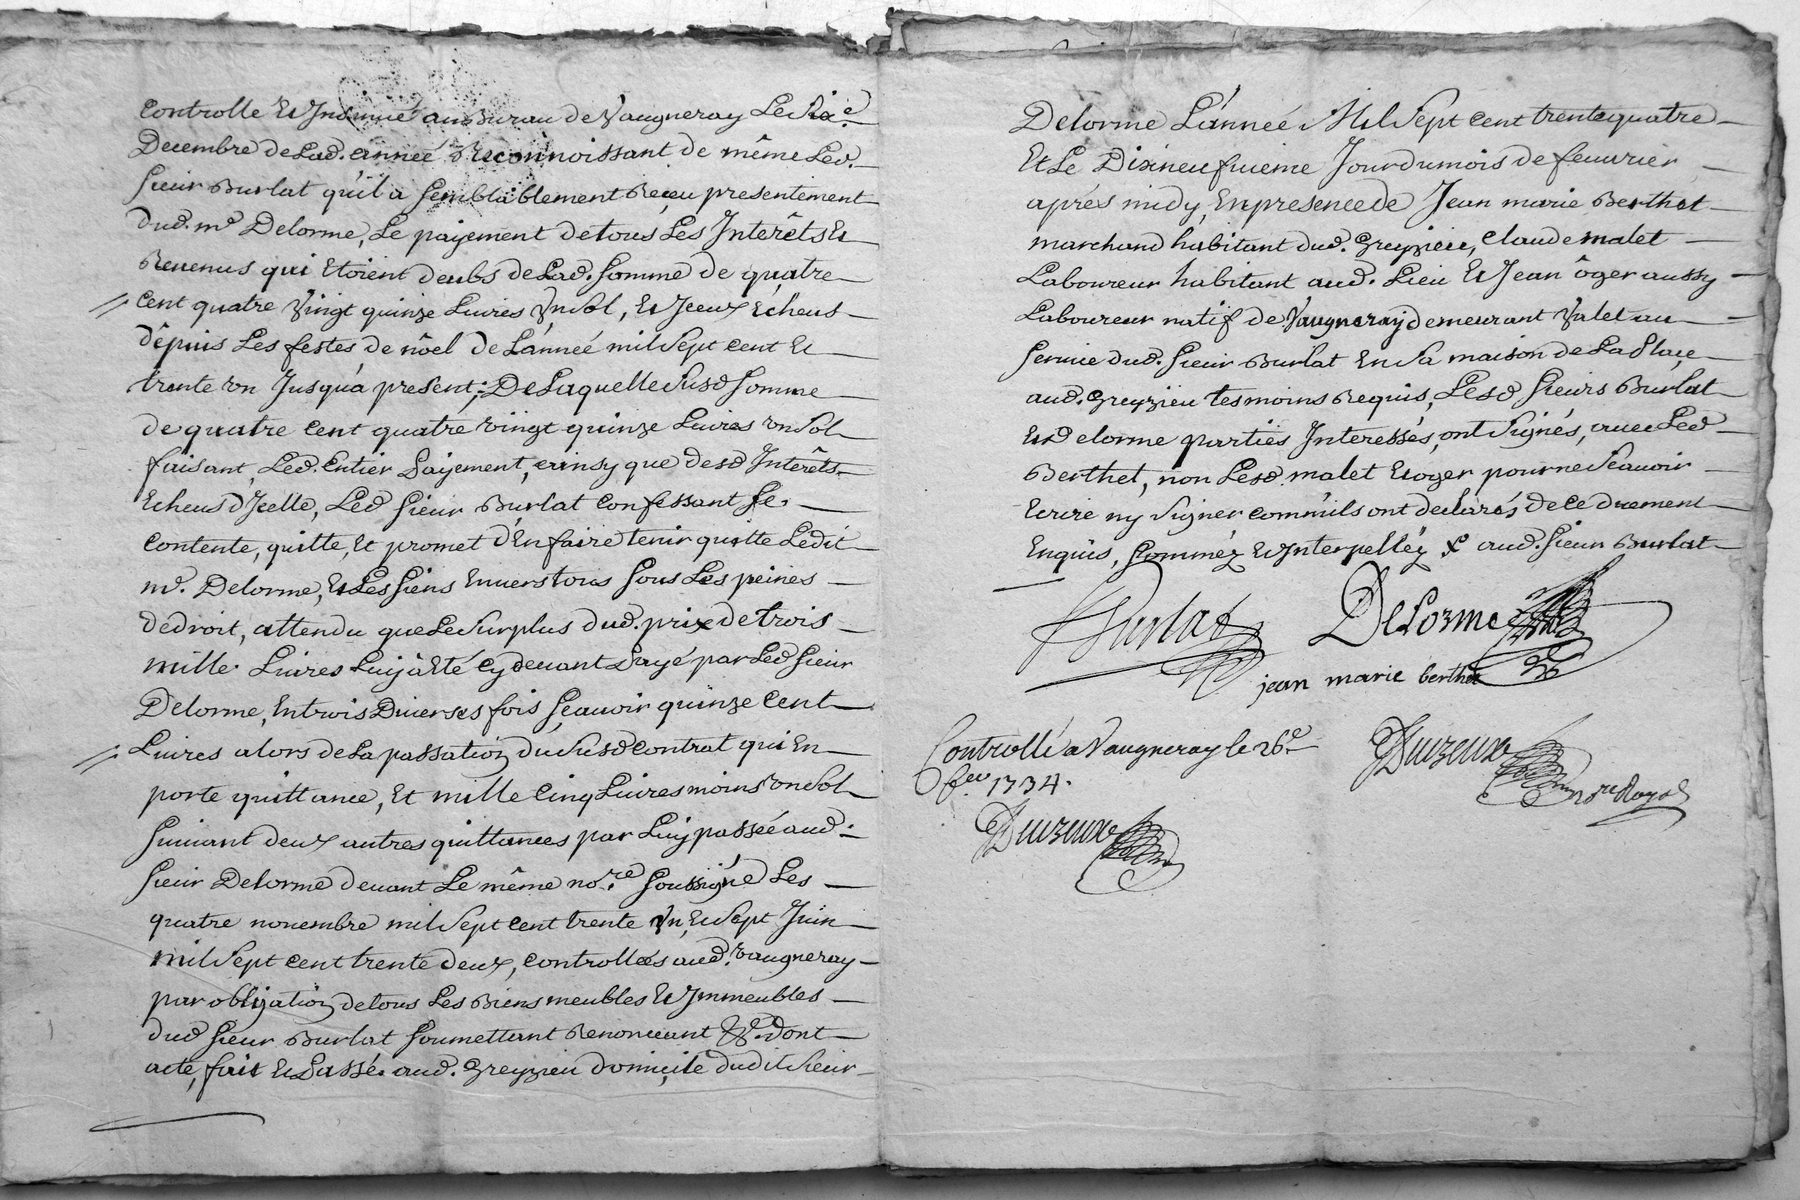 Controllé et Insinué au bureau de Vaugneray Le Six.e
Decembre de Lad. année Reconnoissant de même Led.
sieur Burlat qu'il a semblablement Reçeu presentement
dud. mr. Delorme, Le payement de tous Les Interêts et
Revenus qui étoient deubs de Lad. somme de quatre
Cent quatre Vingt quinze Livres Un sol, et Jceux Echeus
dépuis Les festes de nôel de L'anneé mil sept cent et
trente un Jusqu'a present; De Laquelle susd somme
de quatre cent quatre viingt quinze Livres un sol
faisant Led. Entier payement, ainsy que desd Interêts
Echeus d'Jcelle, Led sieur Burlat confessant se
contente, quitte, et promet d'En faire tenir quitte Ledit
mr. Delorme, et Les siens Envers tous sous Les peines
de droit, attendu que Le surplus dud. prix de trois
mille Livres Luij à été cy devant payé par Led sieur
Delorme, En trois Diverses fois sçauoir quinze Cent
Livres alors de La passation du susd contrat qui En
porte quittance, et mille Cinq Livres moins un sol
suivant deux autres quittances par Luy passéé aud.
sieur Delorme devant Le même no.re soussigné Les
quatre novembre mil sept cent trente Un, et sept Juin
mil sept cent trente deux, controlleés aud. Vaugneray
par obligation de tous Les Biens meubles et Jmmeubles
dud sieur Burlat soumettant Renonceant &.a dont
acte, fait et Passé aud. Greyzieu domicile dudit sieur
Delorme L'anneé Mil sept cent trente quatre
Et Le Dixneufvieme Jour du mois de feuurier
aprés midy, En presence de Jean marie Berthet
marchand habitant dud. Greyzieu, Claude malet
Laboureur habitant aud. Lieu et Jean ôger aussy
Laboureur natif de Vaugneray demeurant Valet au
service dud. sieur Burlat En sa maison de La plaçe
aud. Greyzieu tesmoins Requis, Lesd sieurs Burlat
et Delorme parties Interessés, ont signés, avec Led
Berthet, non Lesd. malet et oger pour ne sçavoir
Ecrire ny signer comm'ils ont declarés de ce duement
Enquis, sommez et Interpelléz aud. sieur Burlat
Burlat DeLorme
jean marie berthet
Controllé a Vaugneray le 26.e
feu. 1734.
Duzeux
Duzeux
no.re Royal